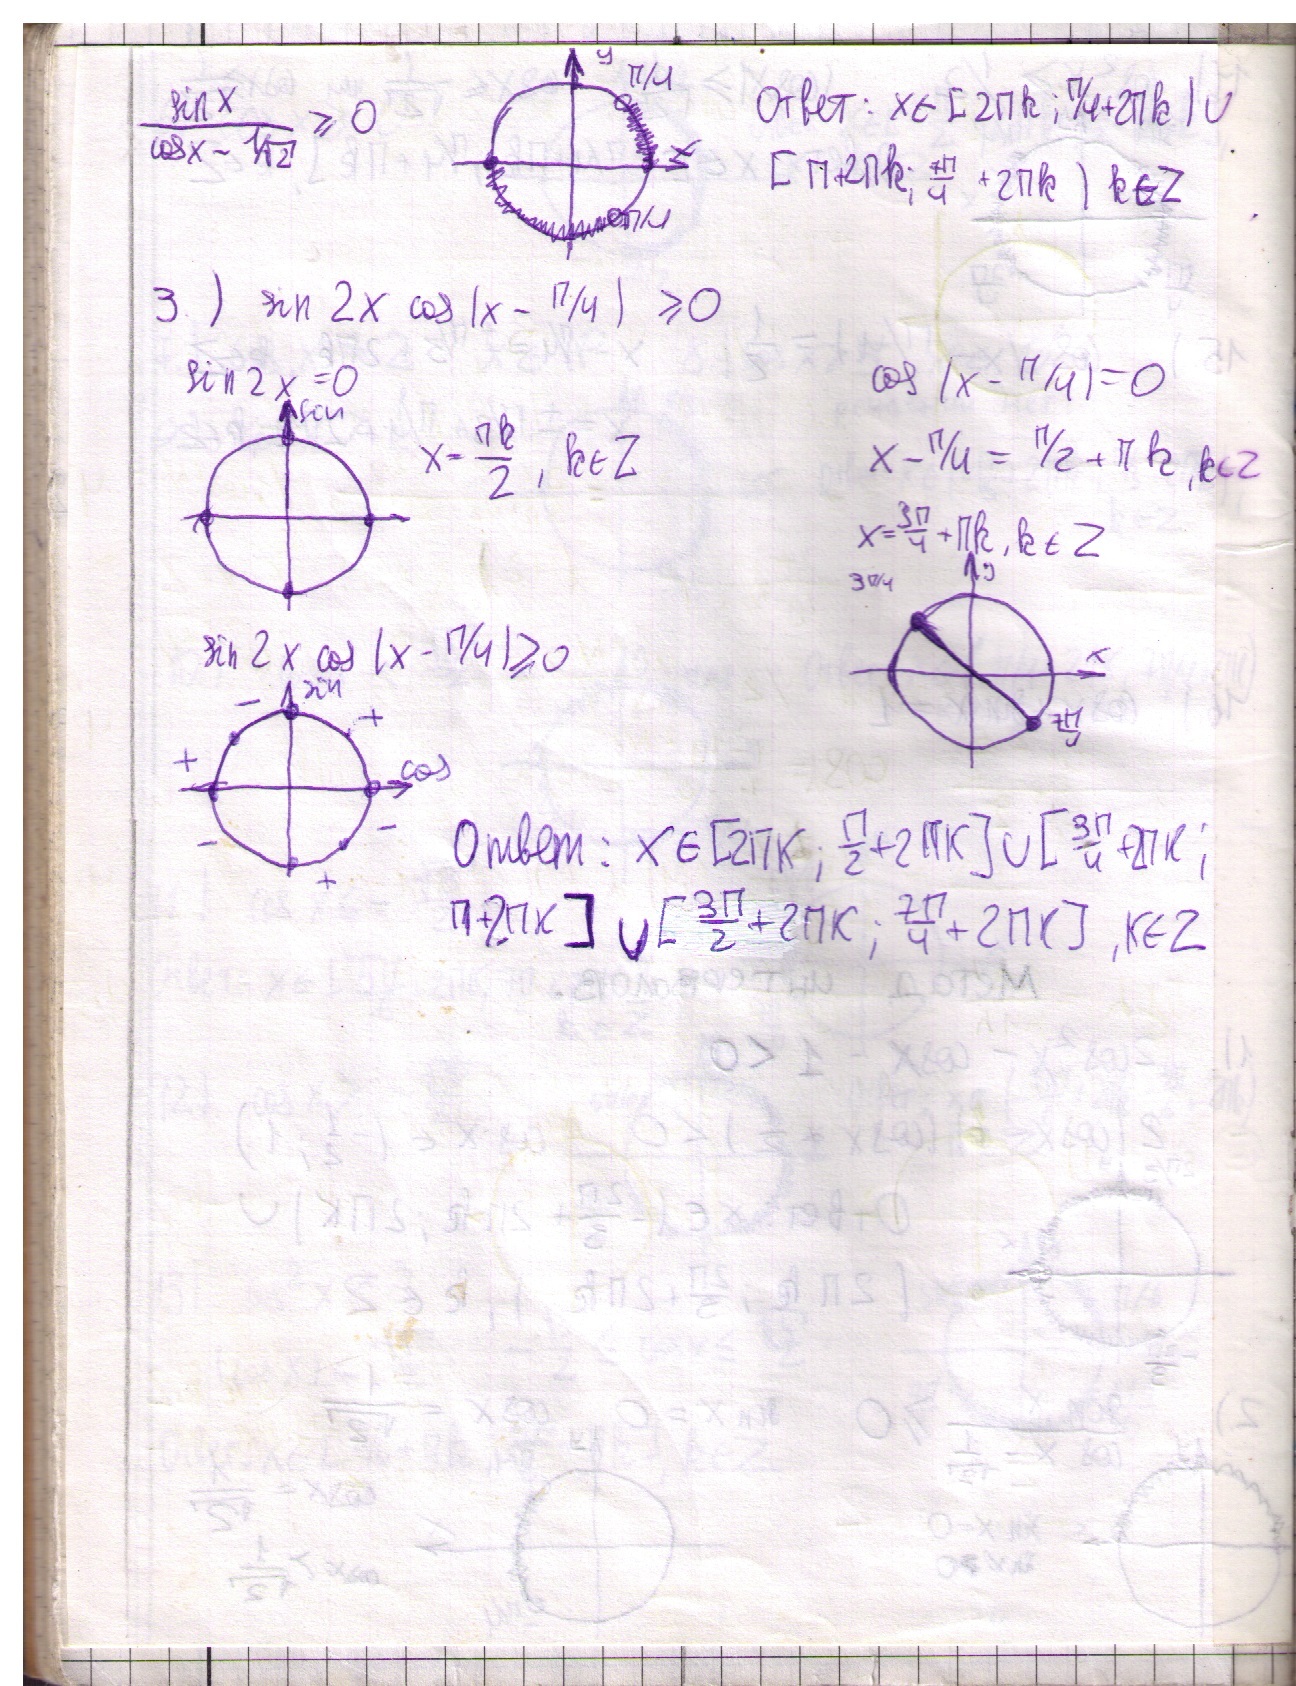 sin x / (cos x - 1/√2) ≥ 0
y
π/4
x
π/4
Ответ: x∈[2πk; π/4+2πk) ∪
[π+2πk; 7π/4 + 2πk) k∈Z
3.) sin 2x cos(x - π/4) ≥ 0
sin 2x = 0
sin
x = πk/2, k∈Z
cos (x - π/4) = 0
x - π/4 = π/2 + πk, k∈Z
x = 3π/4 + πk, k∈Z
3π/4
y
x
7π/4
sin 2x cos (x - π/4) ≥ 0
sin
- +
+
cos
- -
+
Ответ: x∈[2πk; π/2+2πk]∪[3π/4+2πk;
π+2πk] ∪[3π/2+2πk; 7π/4+2πk], k∈Z